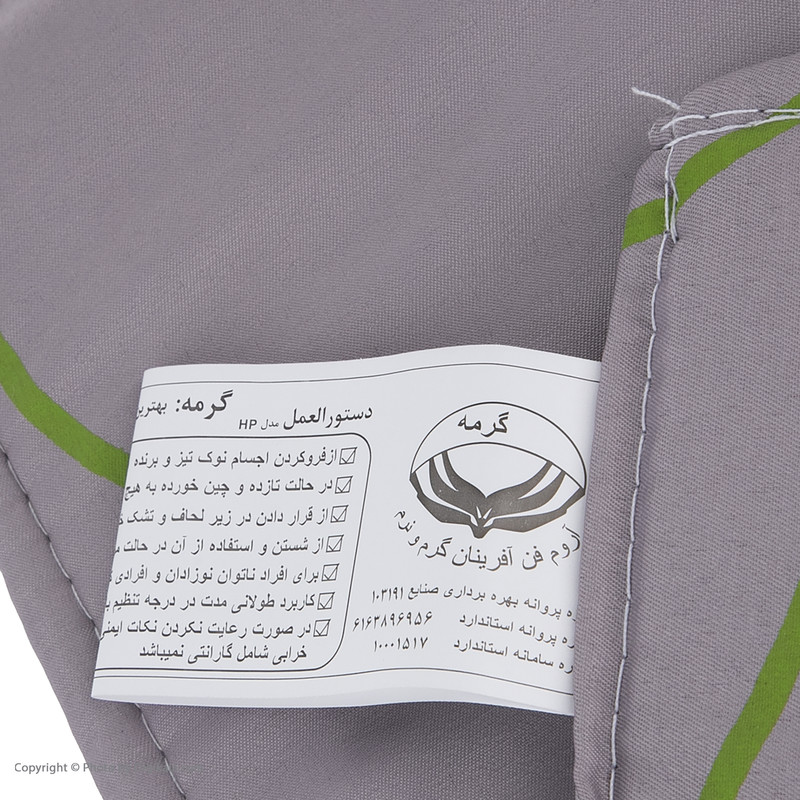 گرمه
آروم فن آفرینان گرم و نرم
ه پروانه بهره برداری صنایع ۱۰۳۱۹۱
ره پروانه استاندارد ۶۱۶۳۸۹۶۹۵۶
ره سامانه استاندارد ۱۰۰۰۱۵۱۷
دستورالعمل مدل HP گرمه: بهترین
ازفروکردن اجسام نوک تیز و برنده
در حالت تازده و چین خورده به هیچ
از قرار دادن در زیر لحاف و تشک
از شستن و استفاده از آن در حالت
برای افراد ناتوان نوزادان و افرادی
کاربرد طولانی مدت در درجه تنظیم
در صورت رعایت نکردن نکات ایمنی
خرابی شامل گارانتی نمیباشد
Copyright ©